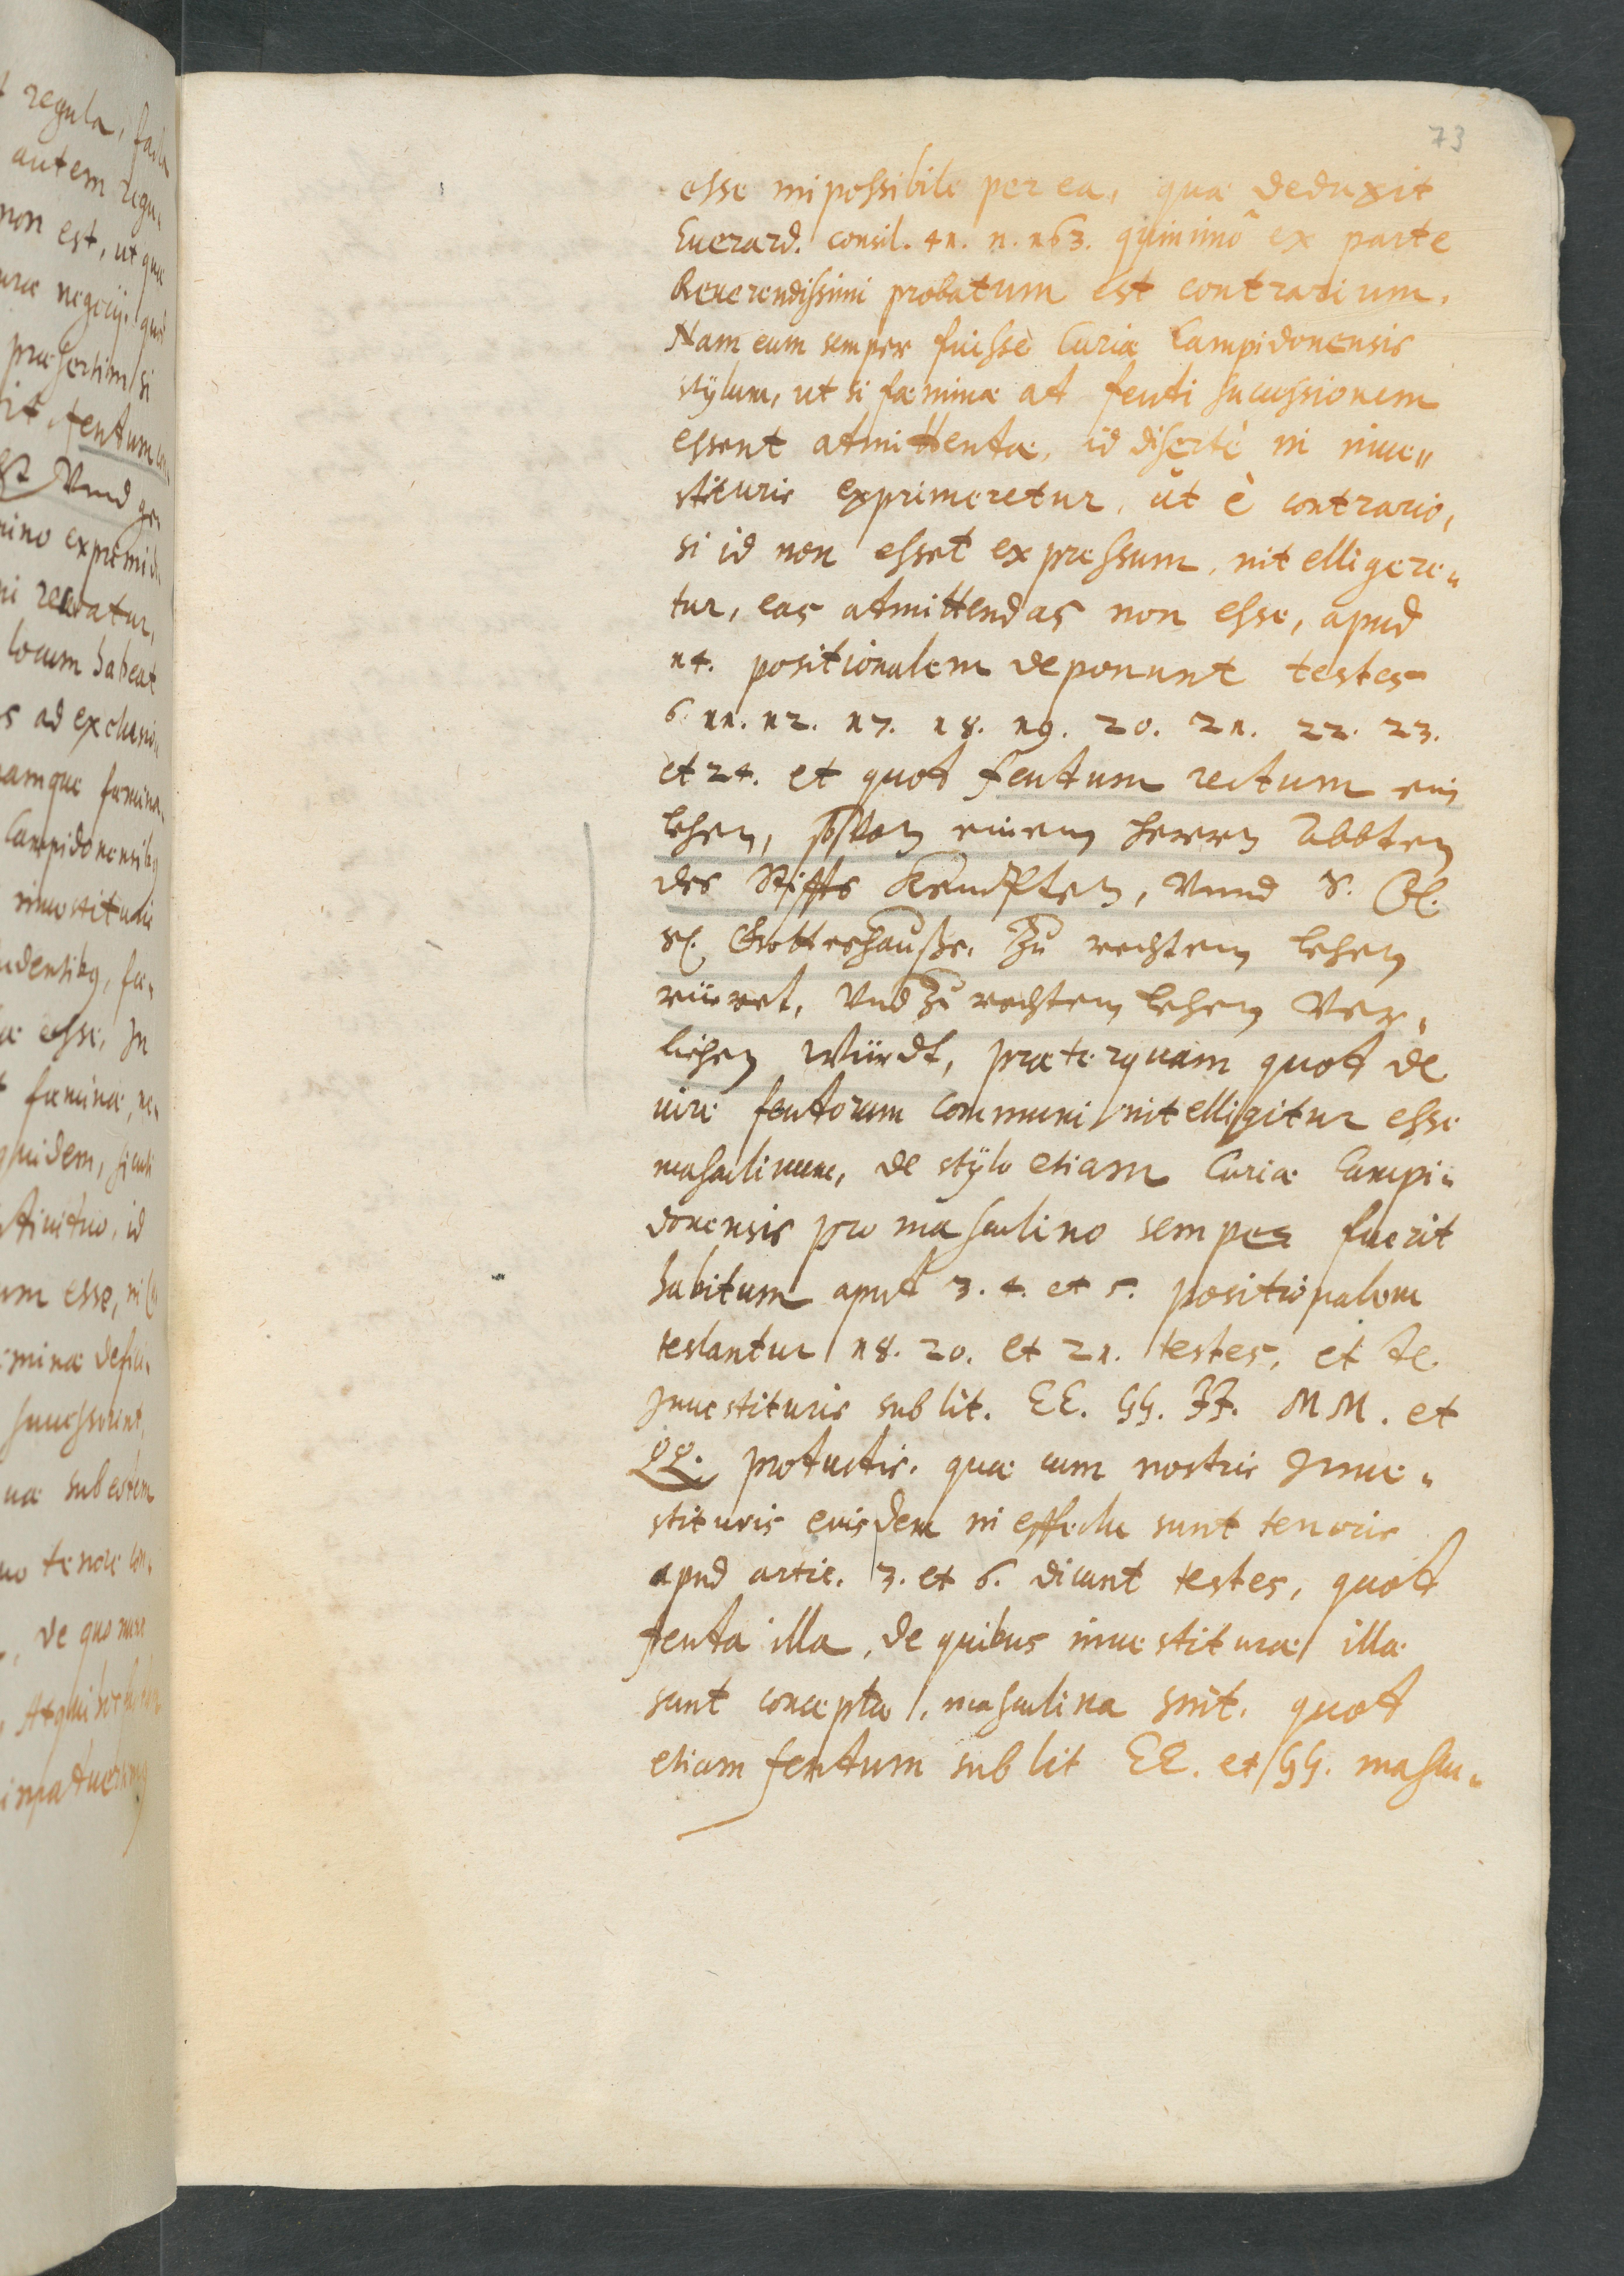 73
esse impossibile per ea, quæ deduxit
Euerard. consil. 41. n. 163. quinimò ex parte
Reuerendissimi probatum est contrarium.
Nam eum semper fuisse Curiæ Campidonensis
stÿlum, ut si fæminæ ad feudi sucessionem
essent admittendæ, id disertè in inue„
stituris exprimeretur, ut è contrario,
si id non esset expressum, intelligere„
tur, eas admittendas non esse, apud
14. positionalem deponunt testes
6. 11. 12. 17. 18. 19. 20. 21. 22. 23.
et 24. et quod feudum rectum ein
lehen, so von einem herrn Abbten
des Stiffts Kempten, Vnnd S.
Gotteshauße. Zu rechtem lehen
rüeret, Vnd Zu rechtem lehen Ver„
lichen Würdt, præterquam quod de
iure feudorum communi intelligitur esse
masculinum, de stÿlo etiam Curiæ Campi„
donensis pro masculino semper fuerit
habitum apud 3. 4. et 5. positionalem
testantur 18. 20. et 21. testes, et de
Inuestituris sub lit. EE. GG. JJ. MM. et
QQ. productis. quæ cum nostris Inue„
stituris eiusdem in effectu sunt tenoris
apud artic. 3. et 6. dicunt testes, quod
feuda illa, de quibus inuestituræ illæ
sunt conceptæ, masculina sint. quod
etiam feudum sub lit EE. et GG. mascu„